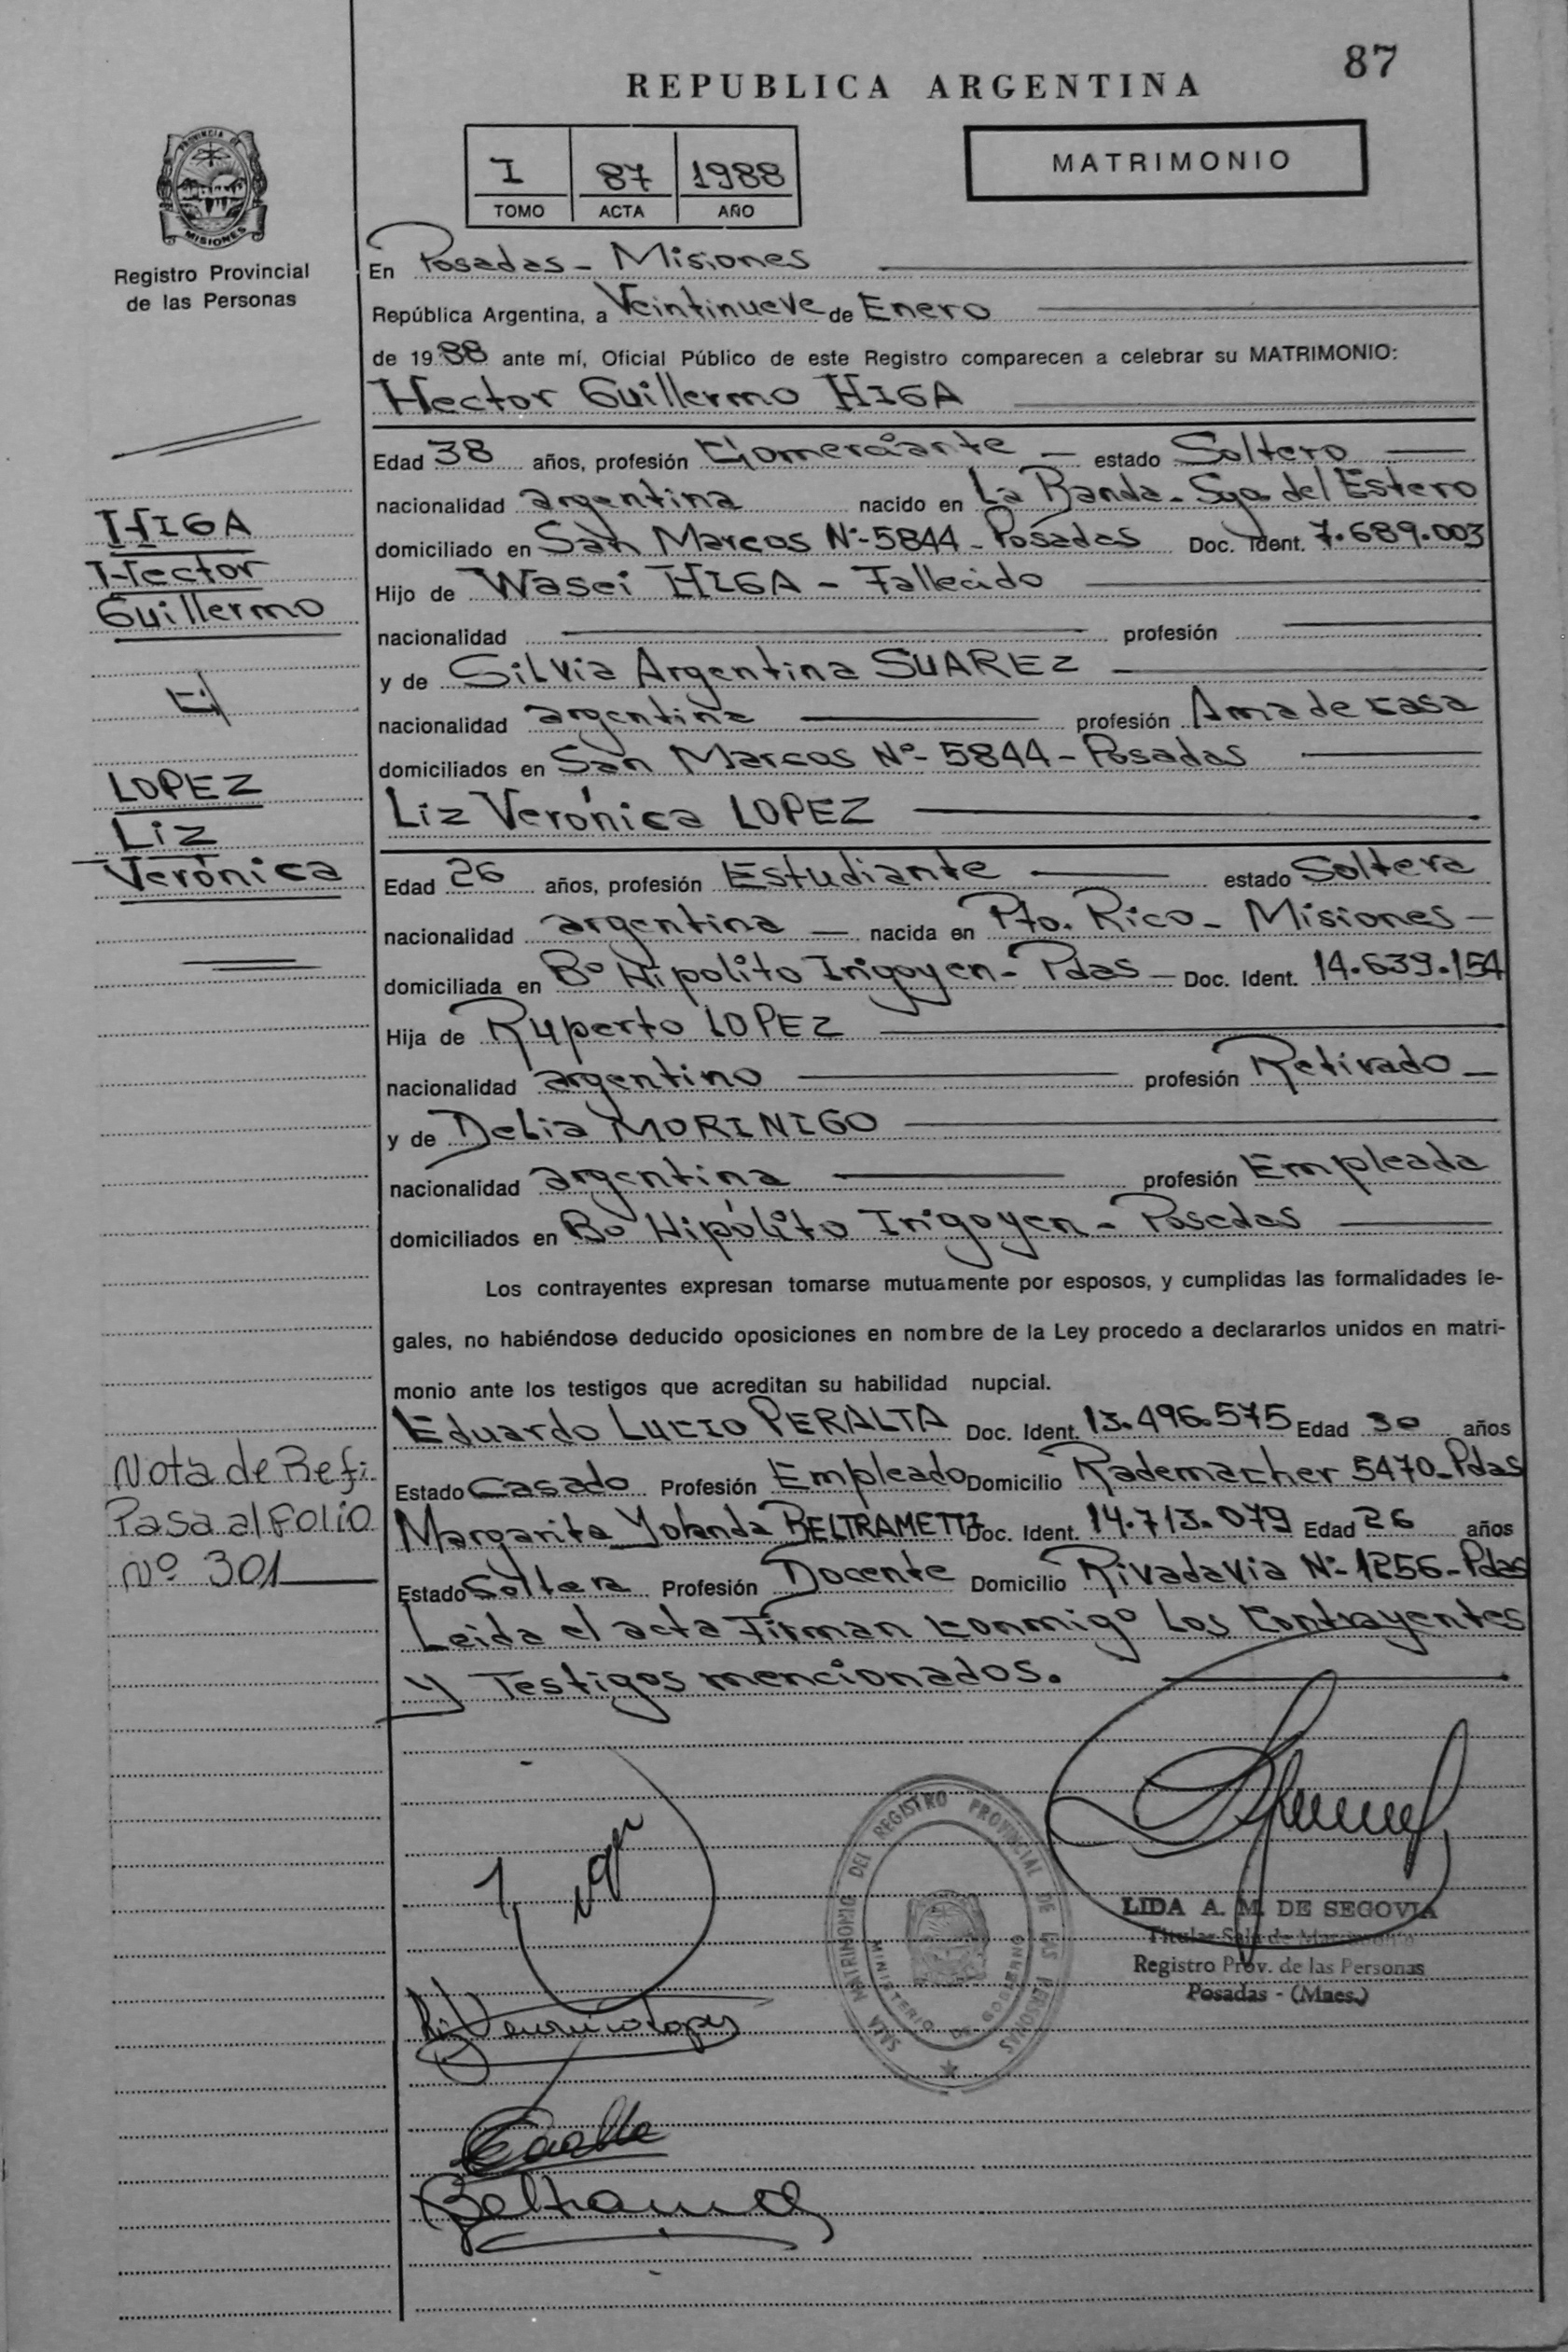 87
REPUBLICA ARGENTINA
I 87 1988
TOMO ACTA AÑO
MATRIMONIO
PROVINCIA DE
MISIONES
Registro Provincial
de las Personas
En Posadas - Misiones
República Argentina, a Veintinueve de Enero
de 1988 ante mí, Oficial Público de este Registro comparecen a celebrar su MATRIMONIO:
Hector Guillermo HIGA
Edad 38 años, profesión Comerciante - estado Soltero
nacionalidad argentina nacido en La Banda - Sgo. del Estero
domiciliado en San Marcos Nº 5844 - Posadas Doc. Ident. 7.689.003
Hijo de Wasei HIGA - Fallecido
nacionalidad profesión
y de Silvia Argentina SUAREZ
nacionalidad argentina profesión Ama de casa
domiciliados en San Marcos Nº 5844 - Posadas
Liz Verónica LOPEZ
Edad 26 años, profesión Estudiante estado Soltera
nacionalidad argentina - nacida en Pto. Rico - Misiones -
domiciliada en Bº Hipolito Irigoyen - Pdas - Doc. Ident. 14.639.154
Hija de Ruperto LOPEZ
nacionalidad argentino profesión Retirado -
y de Delia MORINIGO
nacionalidad argentina profesión Empleada
domiciliados en Bº Hipólito Irigoyen - Posadas
Los contrayentes expresan tomarse mutuamente por esposos, y cumplidas las formalidades le-
gales, no habiéndose deducido oposiciones en nombre de la Ley procedo a declararlos unidos en matri-
monio ante los testigos que acreditan su habilidad nupcial.
Eduardo Lucio PERALTA Doc. Ident. 13.496.575 Edad 30 años
Estado Casado Profesión Empleado Domicilio Rademacher 5470 - Pdas
Margarita Yolanda BELTRAMETTI Doc. Ident. 14.713.079 Edad 26 años
Estado Soltera Profesión Docente Domicilio Rivadavia Nº 1256 - Pdas
Leida el acta Firman conmigo Los Contrayentes
y Testigos mencionados.
HIGA
Hector
Guillermo
c/
LOPEZ
Liz
Verónica
Nota de Ref.
Pasa al Folio
Nº 301
SALA MATRIMONIO DEL REGISTRO PROVINCIAL DE LAS PERSONAS
MINISTERIO DE GOBIERNO
LIDA A. M. DE SEGOVIA
Titular Sala de Matrimonio
Registro Prov. de las Personas
Posadas - (Mnes.)
Liz Veronica Lopez